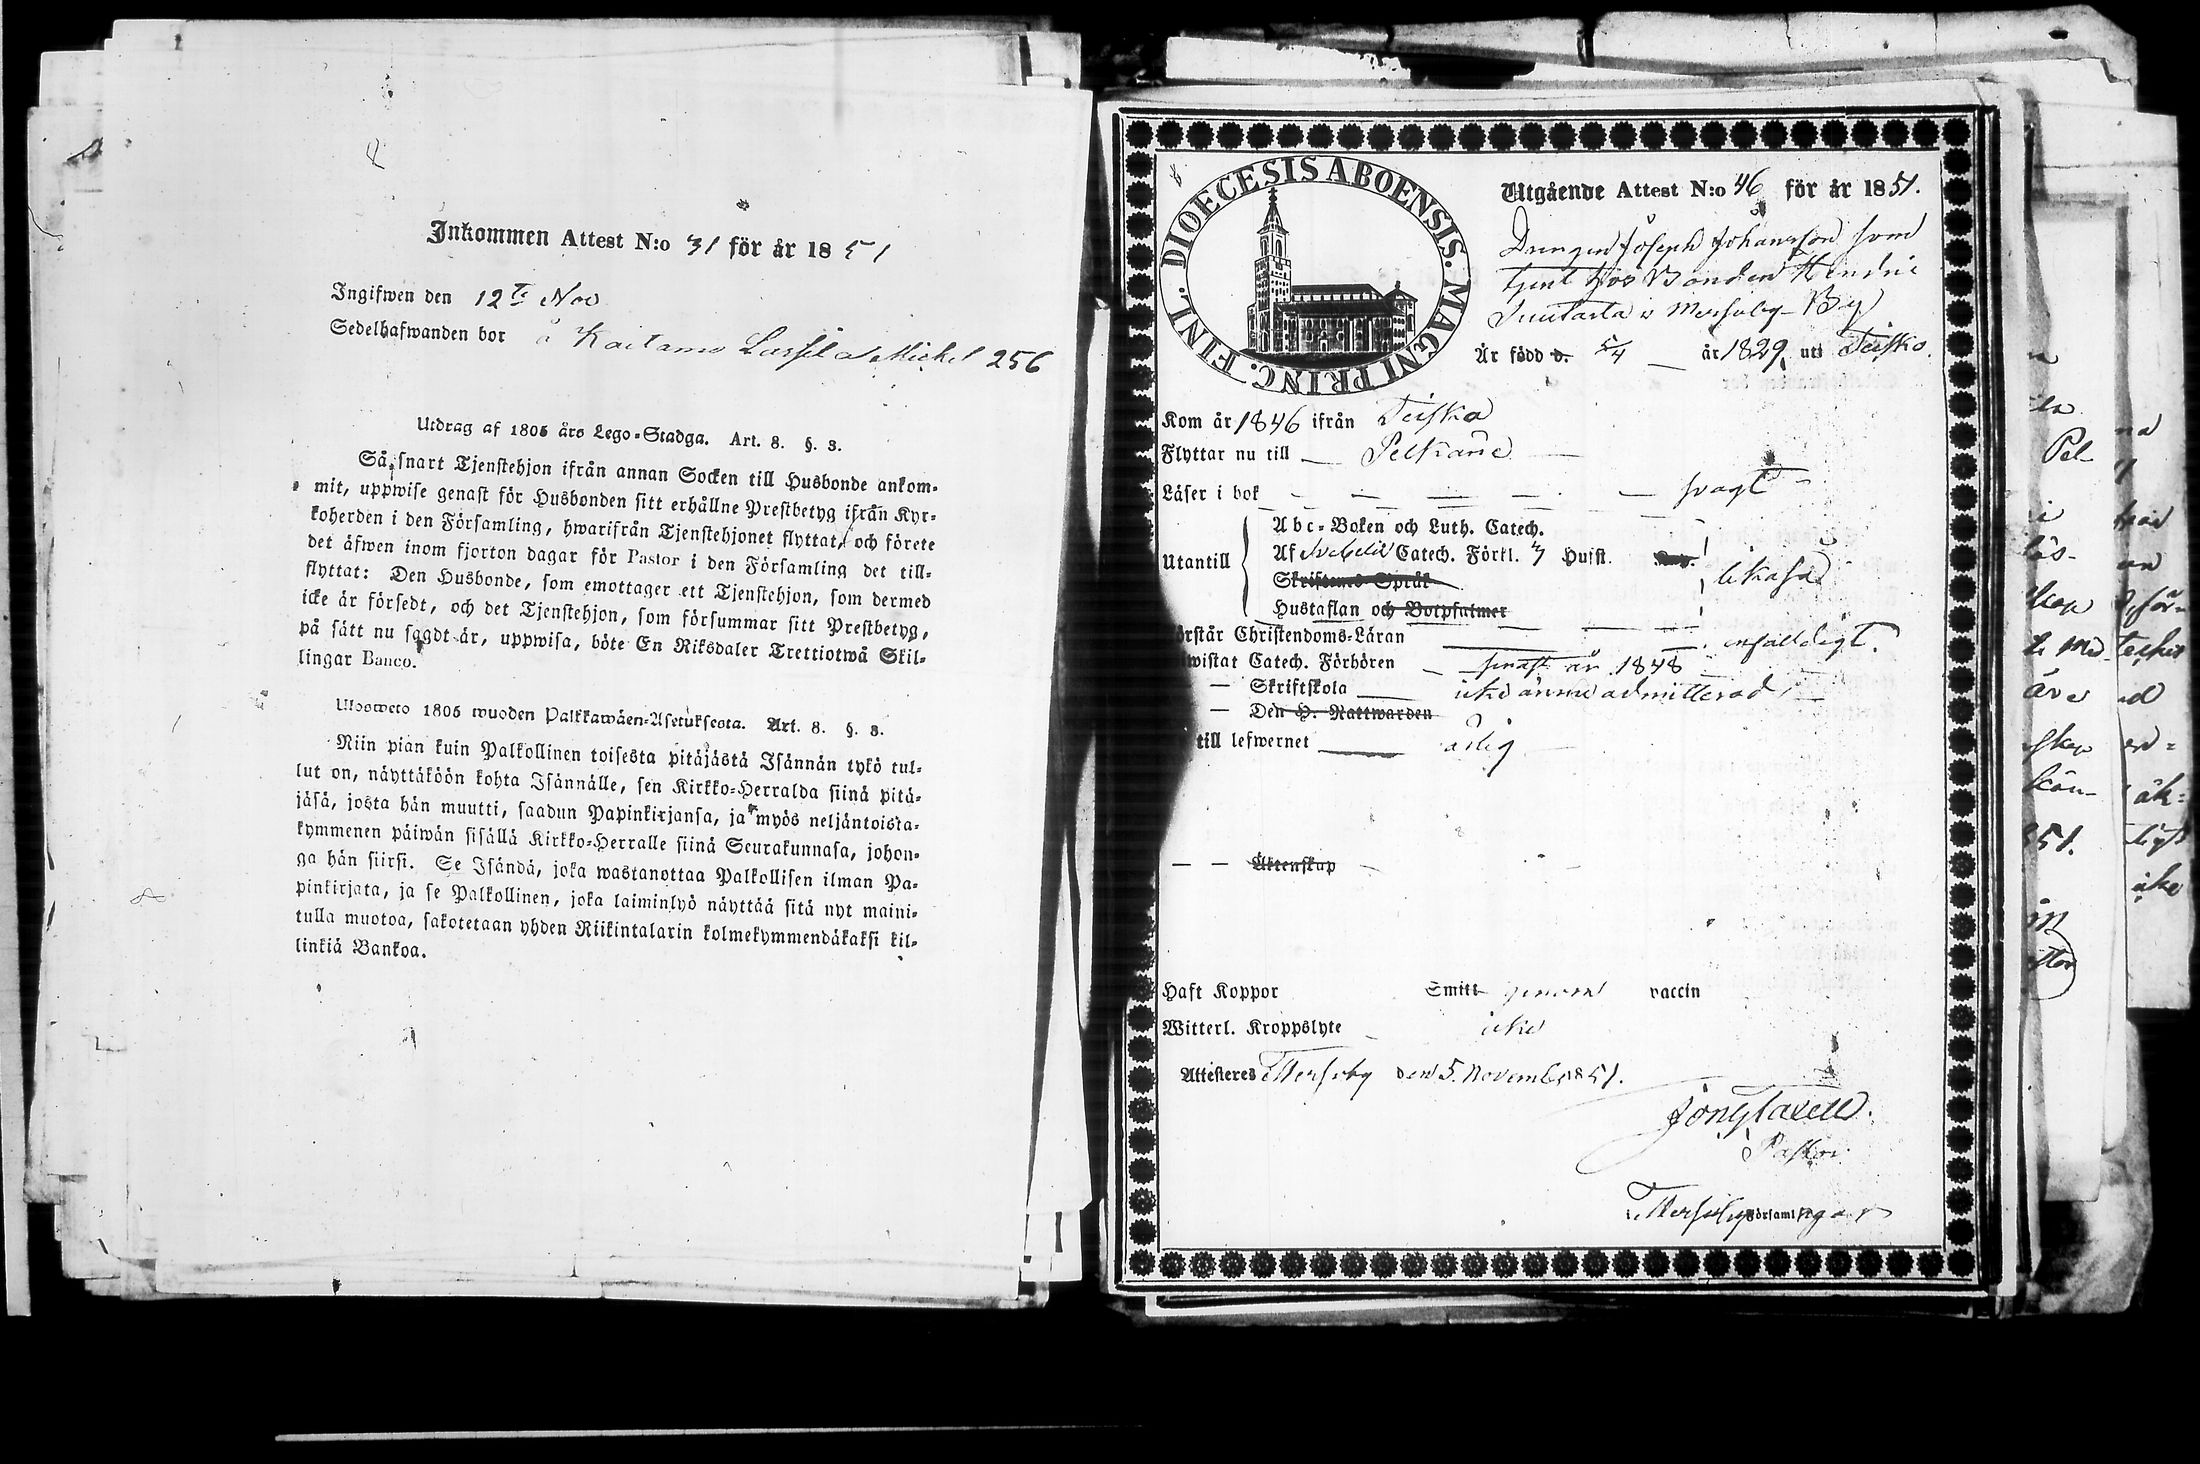 Inkommen Attest N:o 31 för år 1851
Ingifwen den 12te Nov
Sedelhafwanden bor å Kaitamo Lassila Michel 256
Utdrag af 1805 års Lego-Stadga. Art. 8. §. 3.
Så snart Tjenstehjon ifrån annan Socken till Husbonde ankom-
mit, uppwise genast för Husbonden sitt erhållne Prestbetyg ifrån Kyr-
koherden i den Församling, hwarifrån Tjenstehjonet flyttat, och förete
det äfwen inom fjorton dagar för Pastor i den Församling det till-
flyttat: Den Husbonde, som emottager ett Tjenstehjon, som dermed
icke är försedt, och det Tjenstehjon, som försummar sitt Prestbetyg,
på sätt nu sagdt är, uppwisa, böte En Riksdaler Trettiotwå Skil-
lingar Banco.
Ulosweto 1805 wuoden Palkkawäen-Asetuksesta. Art. 8. §. 3.
Niin pian kuin Palkollinen toisesta pitäjästä Isännän tykö tul-
lut on, näyttäköön kohta Isännälle, sen Kirkko-Herralda siinä pitä-
jäsä, josta hän muutti, saadun Papinkirjansa, ja myös neljäntoista-
kymmenen päiwän sisällä Kirkko-Herralle siinä Seurakunnasa, johon-
ga hän siirsi. Se Isändä, joka wastanottaa Palkollisen ilman Pa-
pinkirjata, ja se Palkollinen, joka laiminlyö näyttää sitä nyt maini-
tulla muotoa, sakotetaan yhden Riikintalarin kolmekymmendäkaksi kil-
linkiä Bankoa.
DIOECESIS ABOENSIS. MAGNI PRINC. FINL.
Utgående Attest N:o 46 för år 1851.
Drengen Joseph Johansson som
tjent hos Bonden Hendric
i Messuby By
Är född d. 5/4 år 1829 uti Teisko.
Kom år 1846 ifrån Teisko
Flyttar nu till Pelkäne
Läser i bok svagt
Utantill
Abc-Boken och Luth. Catech.
Af Svebelii Catech. Förkl. 3 Hufst.
Skriftens Språk
Hustaflan och Botpsalmer
likaså
örstår Christendoms-Läran enfaldigt.
wistat Catech. Förhören senast år 1848
— Skriftskola icke ännu admitterad
— Den H. Nattwarden
till lefwernet ärlig
— — Äktenskap
Haft Koppor Smitt genom vaccin
Witterl. Kroppslyte icke
Attesteres Messuby den 5. November 1851.
Pastor
Messuby Församlingar
Pel-